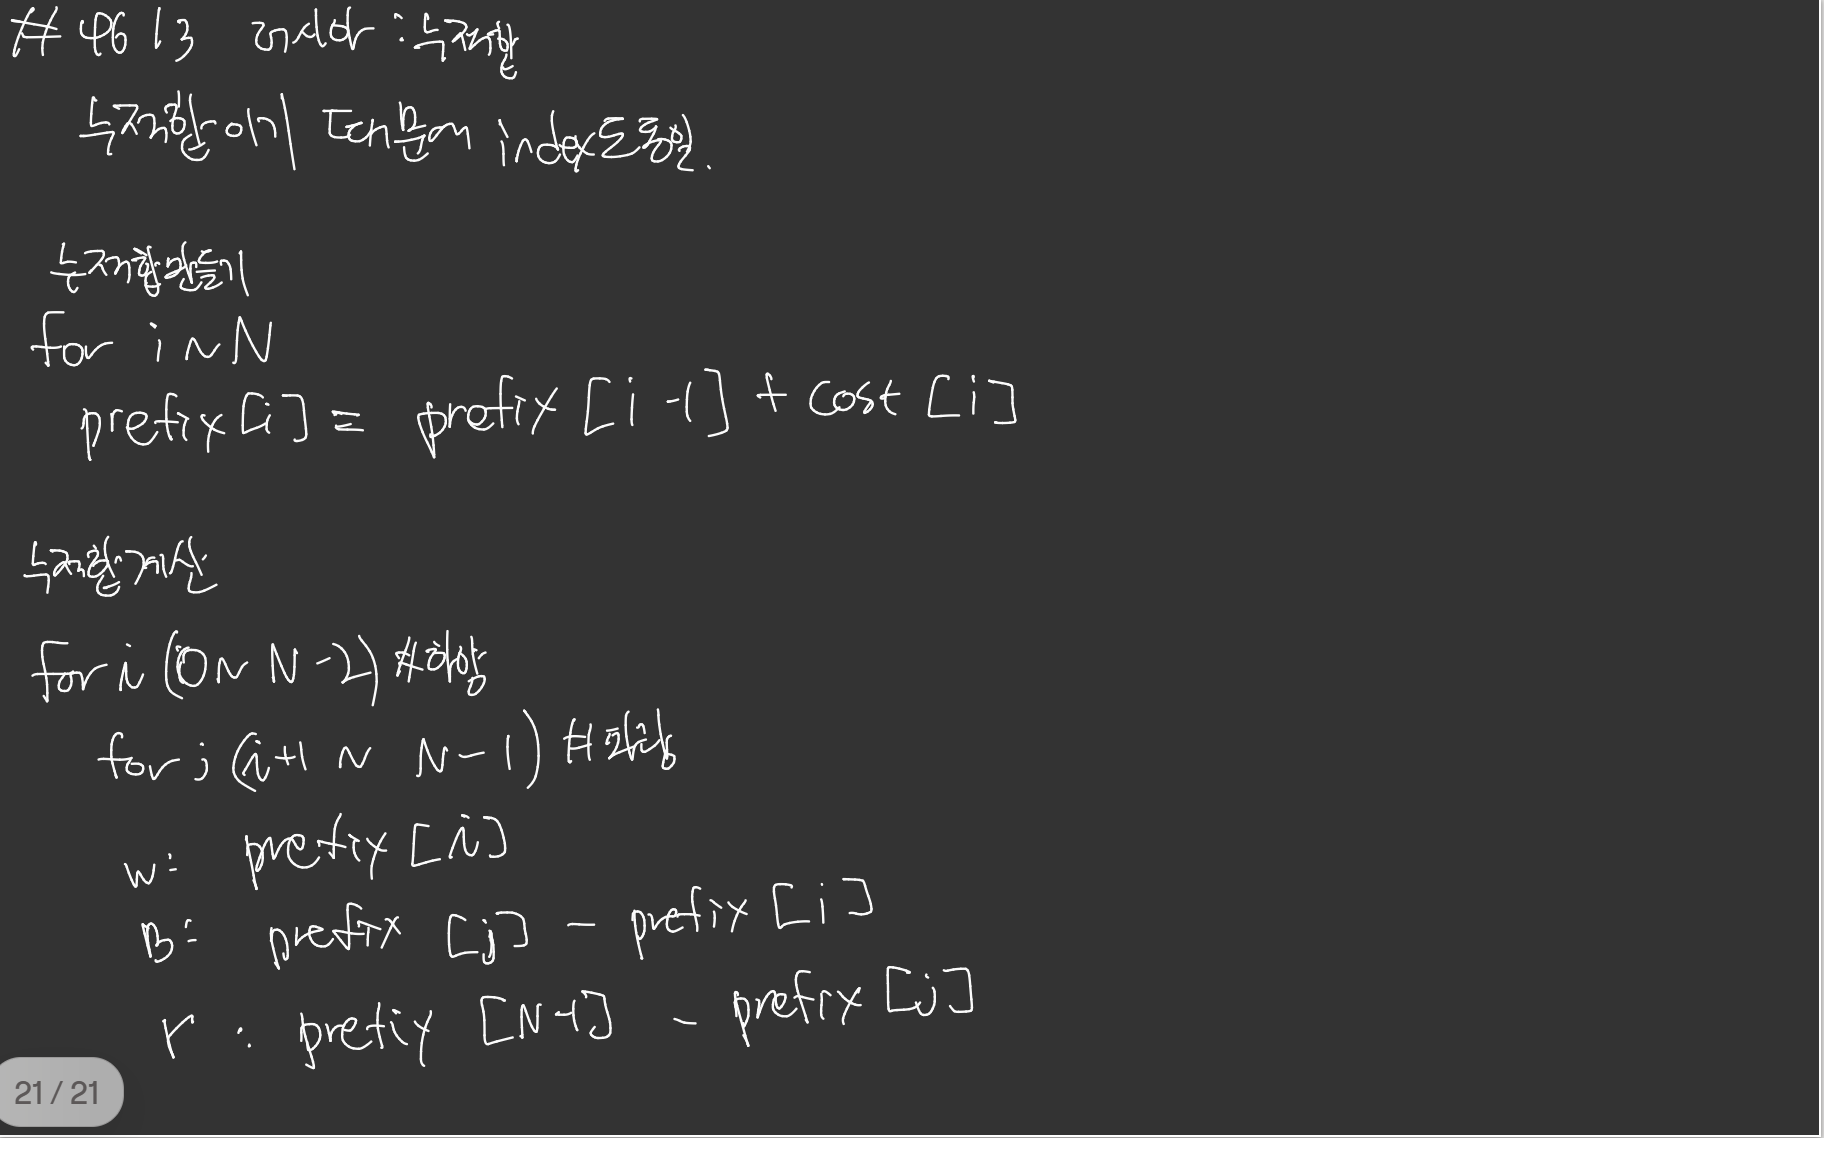 # 4613 러시아 : 누적합
누적합이기 때문에 index도 동일.
누적합 만들기
for i ~ N
prefix[i] = prefix[i-1] + cost[i]
누적합 계산
for i (0 ~ N-2) #하양
for j (i+1 ~ N-1) #파랑
w: prefix[i]
B: prefix[j] - prefix[i]
r : prefix[N-1] - prefix[j]
21 / 21